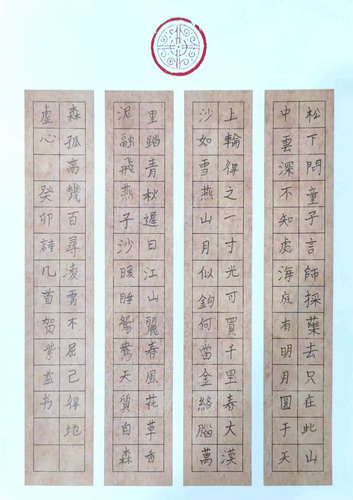 松下問童子言師採藥去只在此山
中雲深不知處海底有明月圓于天
上輪得之一寸光可買千里春大漠
沙如雪燕山月似鉤何當金絡腦萬
里踏青秋遲日江山麗春風花草香
泥融飛燕子沙暖睡鴛鴦天質自森
森孤高幾百尋凌霄不屈己得地
虛心 癸卯詩几首贺紫益书